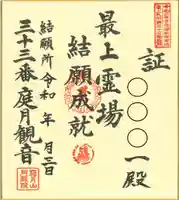 証
〇〇〇一殿
最上霊場
結願成就
結願所令和 年 月三日
三十三番庭月観音